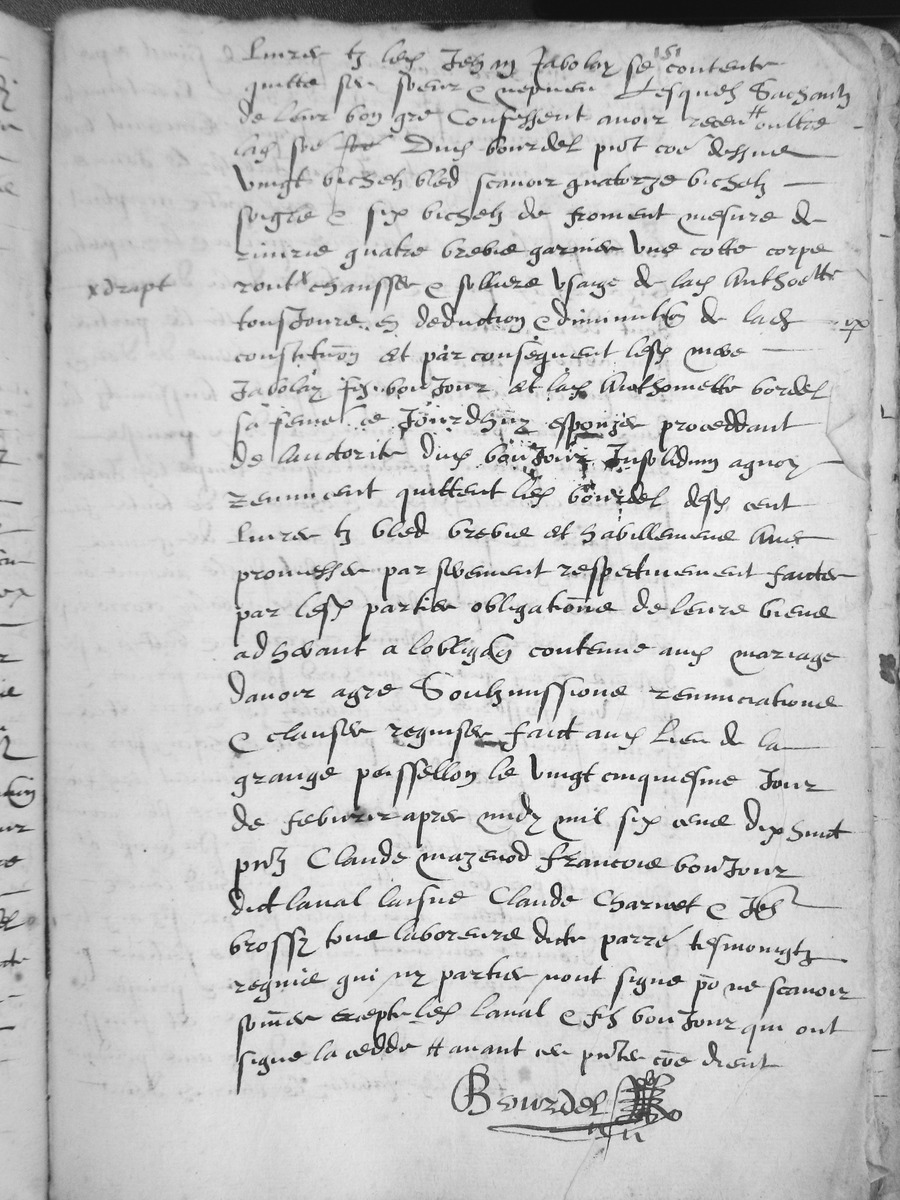 livres tz led Jehan Jabolay se contente
quitte ses soeur & nepveu Lesquels Sachantz
de leur bon gre Confessent avoir receu oultre
Dud bourdel pnt coe dessus
vingt bichetz bled scavoir quatorze bichetz
soigle & six bichetz de froment mesure de
quatre brebis garnies une cotte corps
x drapt
ront x chausses & solliers usaige de lad Anthoette
tousjours en deduction & diminution de lad
constitution et par consequent lesd
Jabolay filz bonJour et lad Anthoinette bordel
sa feme ce Jourdhuy espouzes proceddant
de lauctorite dud bonJour Insolidum
renuncent quittent led bourdel desd cent
livres tz bled brebis et habillemens Avec
promesses par serement respectivement faictes
par lesd parties obligations de leurs biens
adherant a lobligaon contenue aud mariage
davoir agre Soubzmissions renunciations
& clauses requises faict aud lieu de la
grange peissellon le vingt cinquiesme Jour
de febvrier apres midy mil six cens dix huict
pntz Claude mazenod francois bonJour
dict laval laisne Claude Charvet & Jeh
brossy tous laboreurs dicte parre tesmoingtz
requis qui ny parties nont signe po ne scavoir
sommes excepte led laval & filz bonJour qui ont
signe la cedde avant ces pntes coe dient
Bourdel